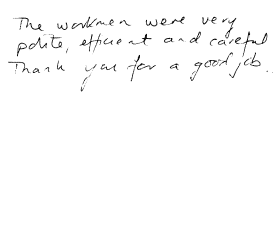 The workmen were very
polite, efficient and careful
Thank you for a good job..